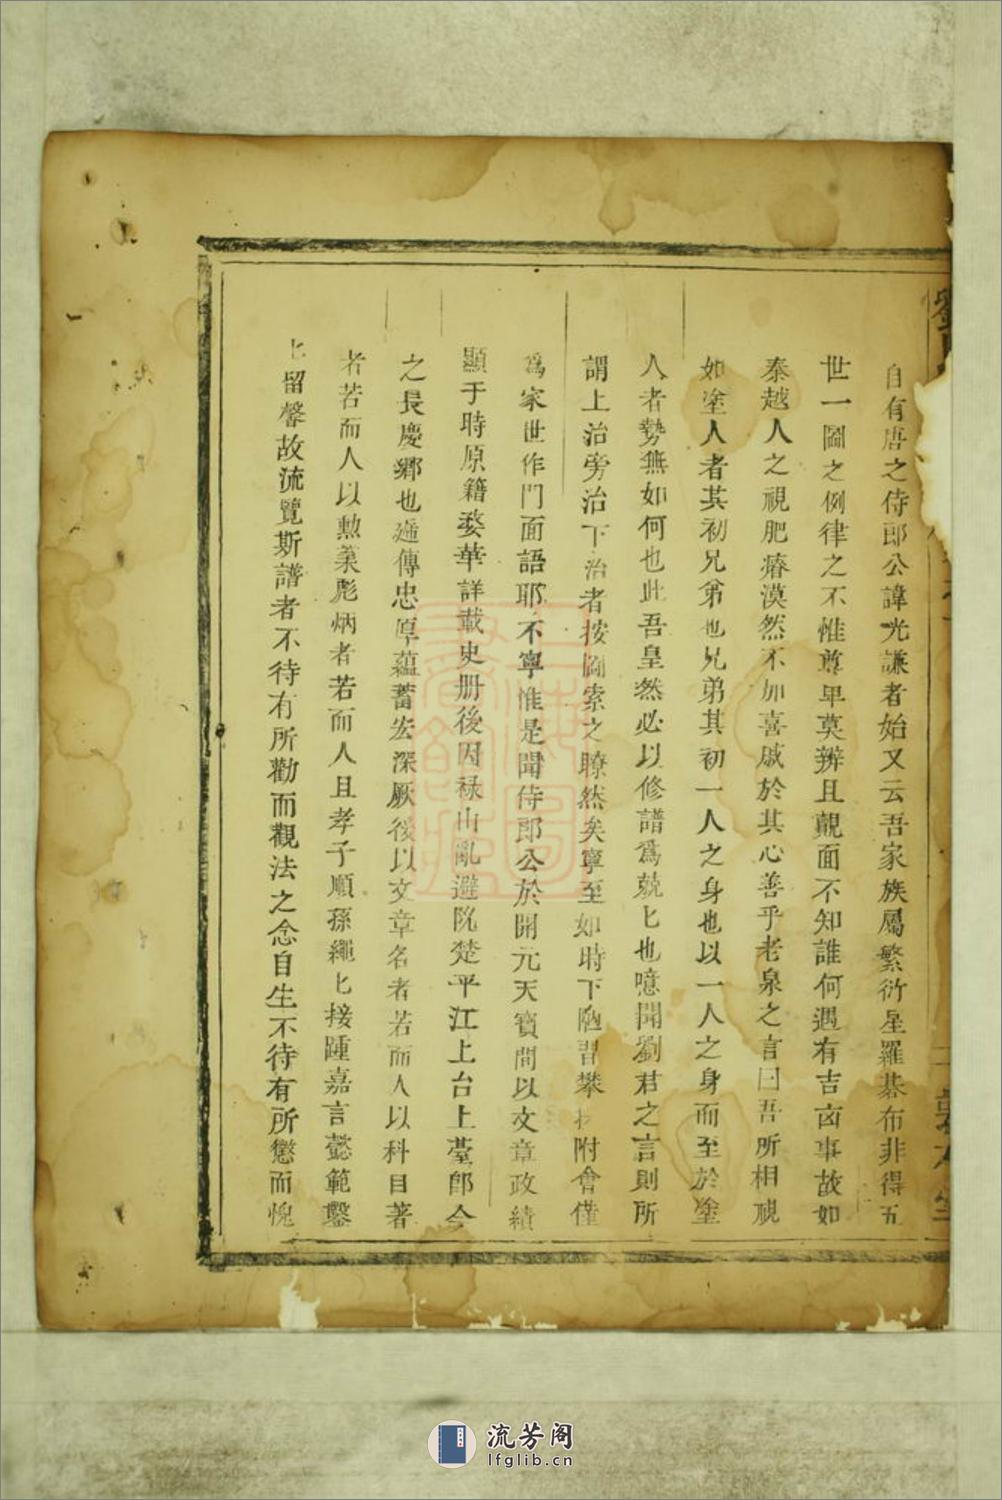 自有唐之侍郎公諱光謙者始又云吾家族屬繁衍星羅碁布非得五
世一圖之例律之不惟尊卑莫辨且覿面不知誰何遇有吉凶事故如
秦越人之視肥瘠漠然不加喜戚於其心善乎老泉之言曰吾所相視
如塗人者其初兄弟也兄弟其初一人之身也以一人之身而至於塗
人者勢無如何也此吾皇然必以修譜為兢匕也噫聞劉君之言則所
謂上治旁治下治者按圖索之瞭然矣寧至如時下陋習攀附會僅
為家世作門面語耶不寧惟是聞侍郎公於開元天寶間以文章政績
顯于時原籍婺華詳載史册後因祿山亂避阮楚平江上台上臺即今
之長慶鄉也遞傳忠厚蘊蓄宏深厥後以文章名者若而人以科目著
者若而人以勲業彪炳者若而人且孝子順孫繩匕接踵嘉言懿範鑿
匕留馨故流覽斯譜者不待有所勸而觀法之念自生不待有所懲而愧
劉
流芳阁
lfglib.cn